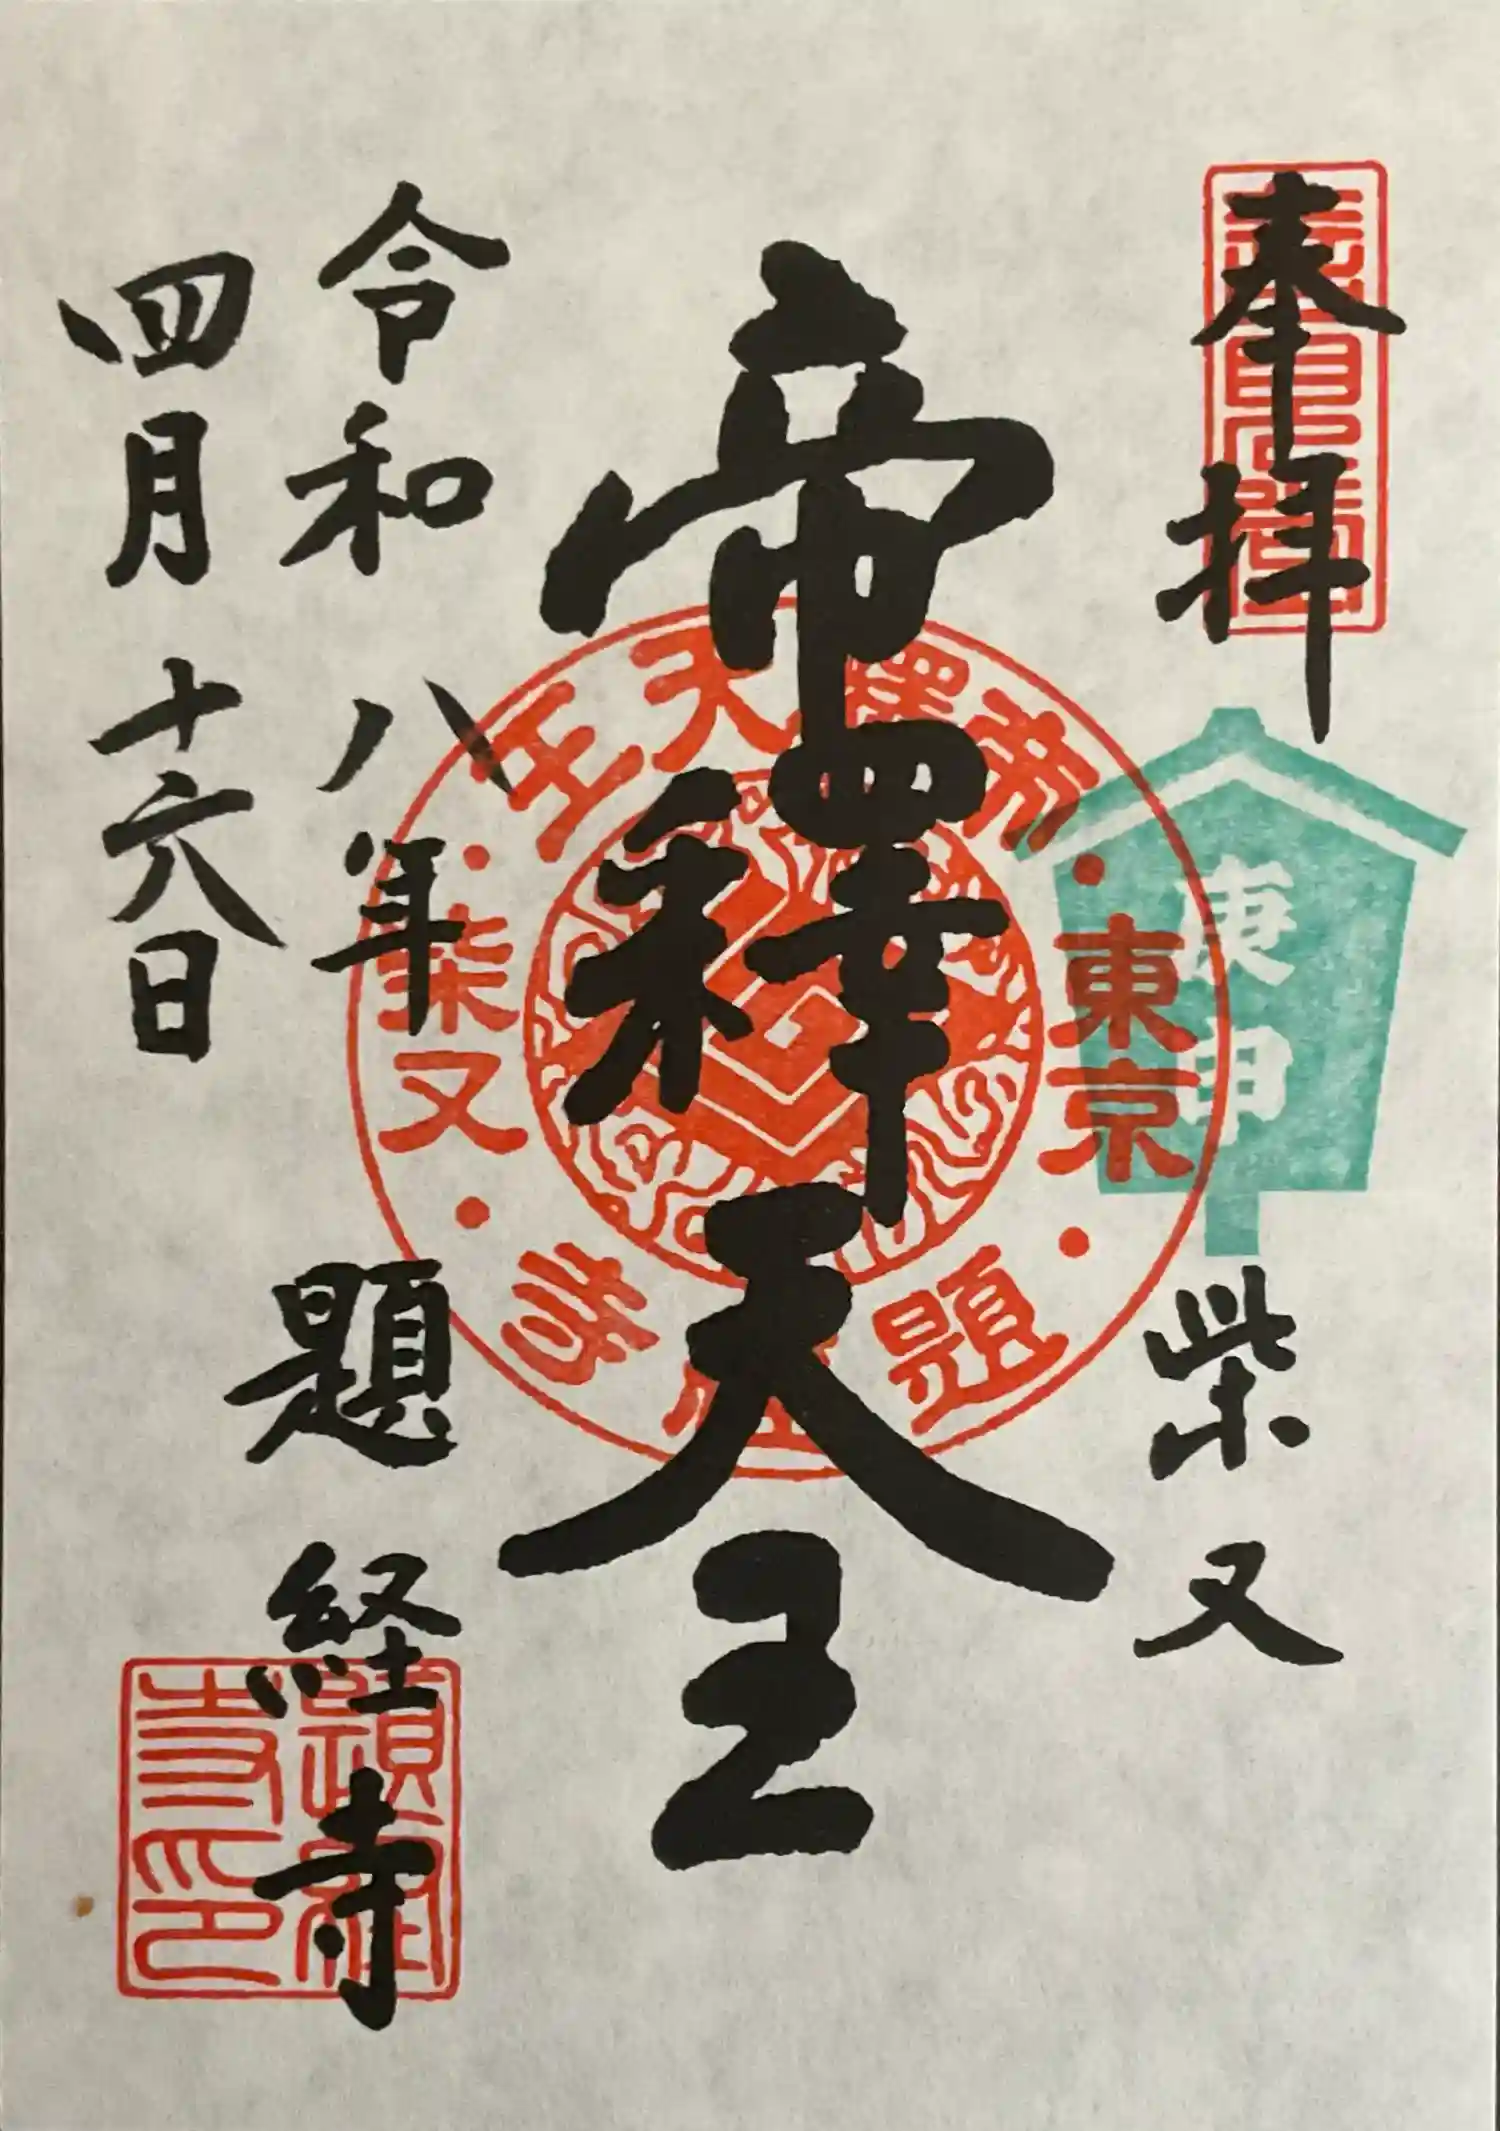 奉拝
庚申
柴又
帝釋天王
帝釋天王
東京
柴又
題経寺
令和八年
題経寺
四月十六日
題経寺印